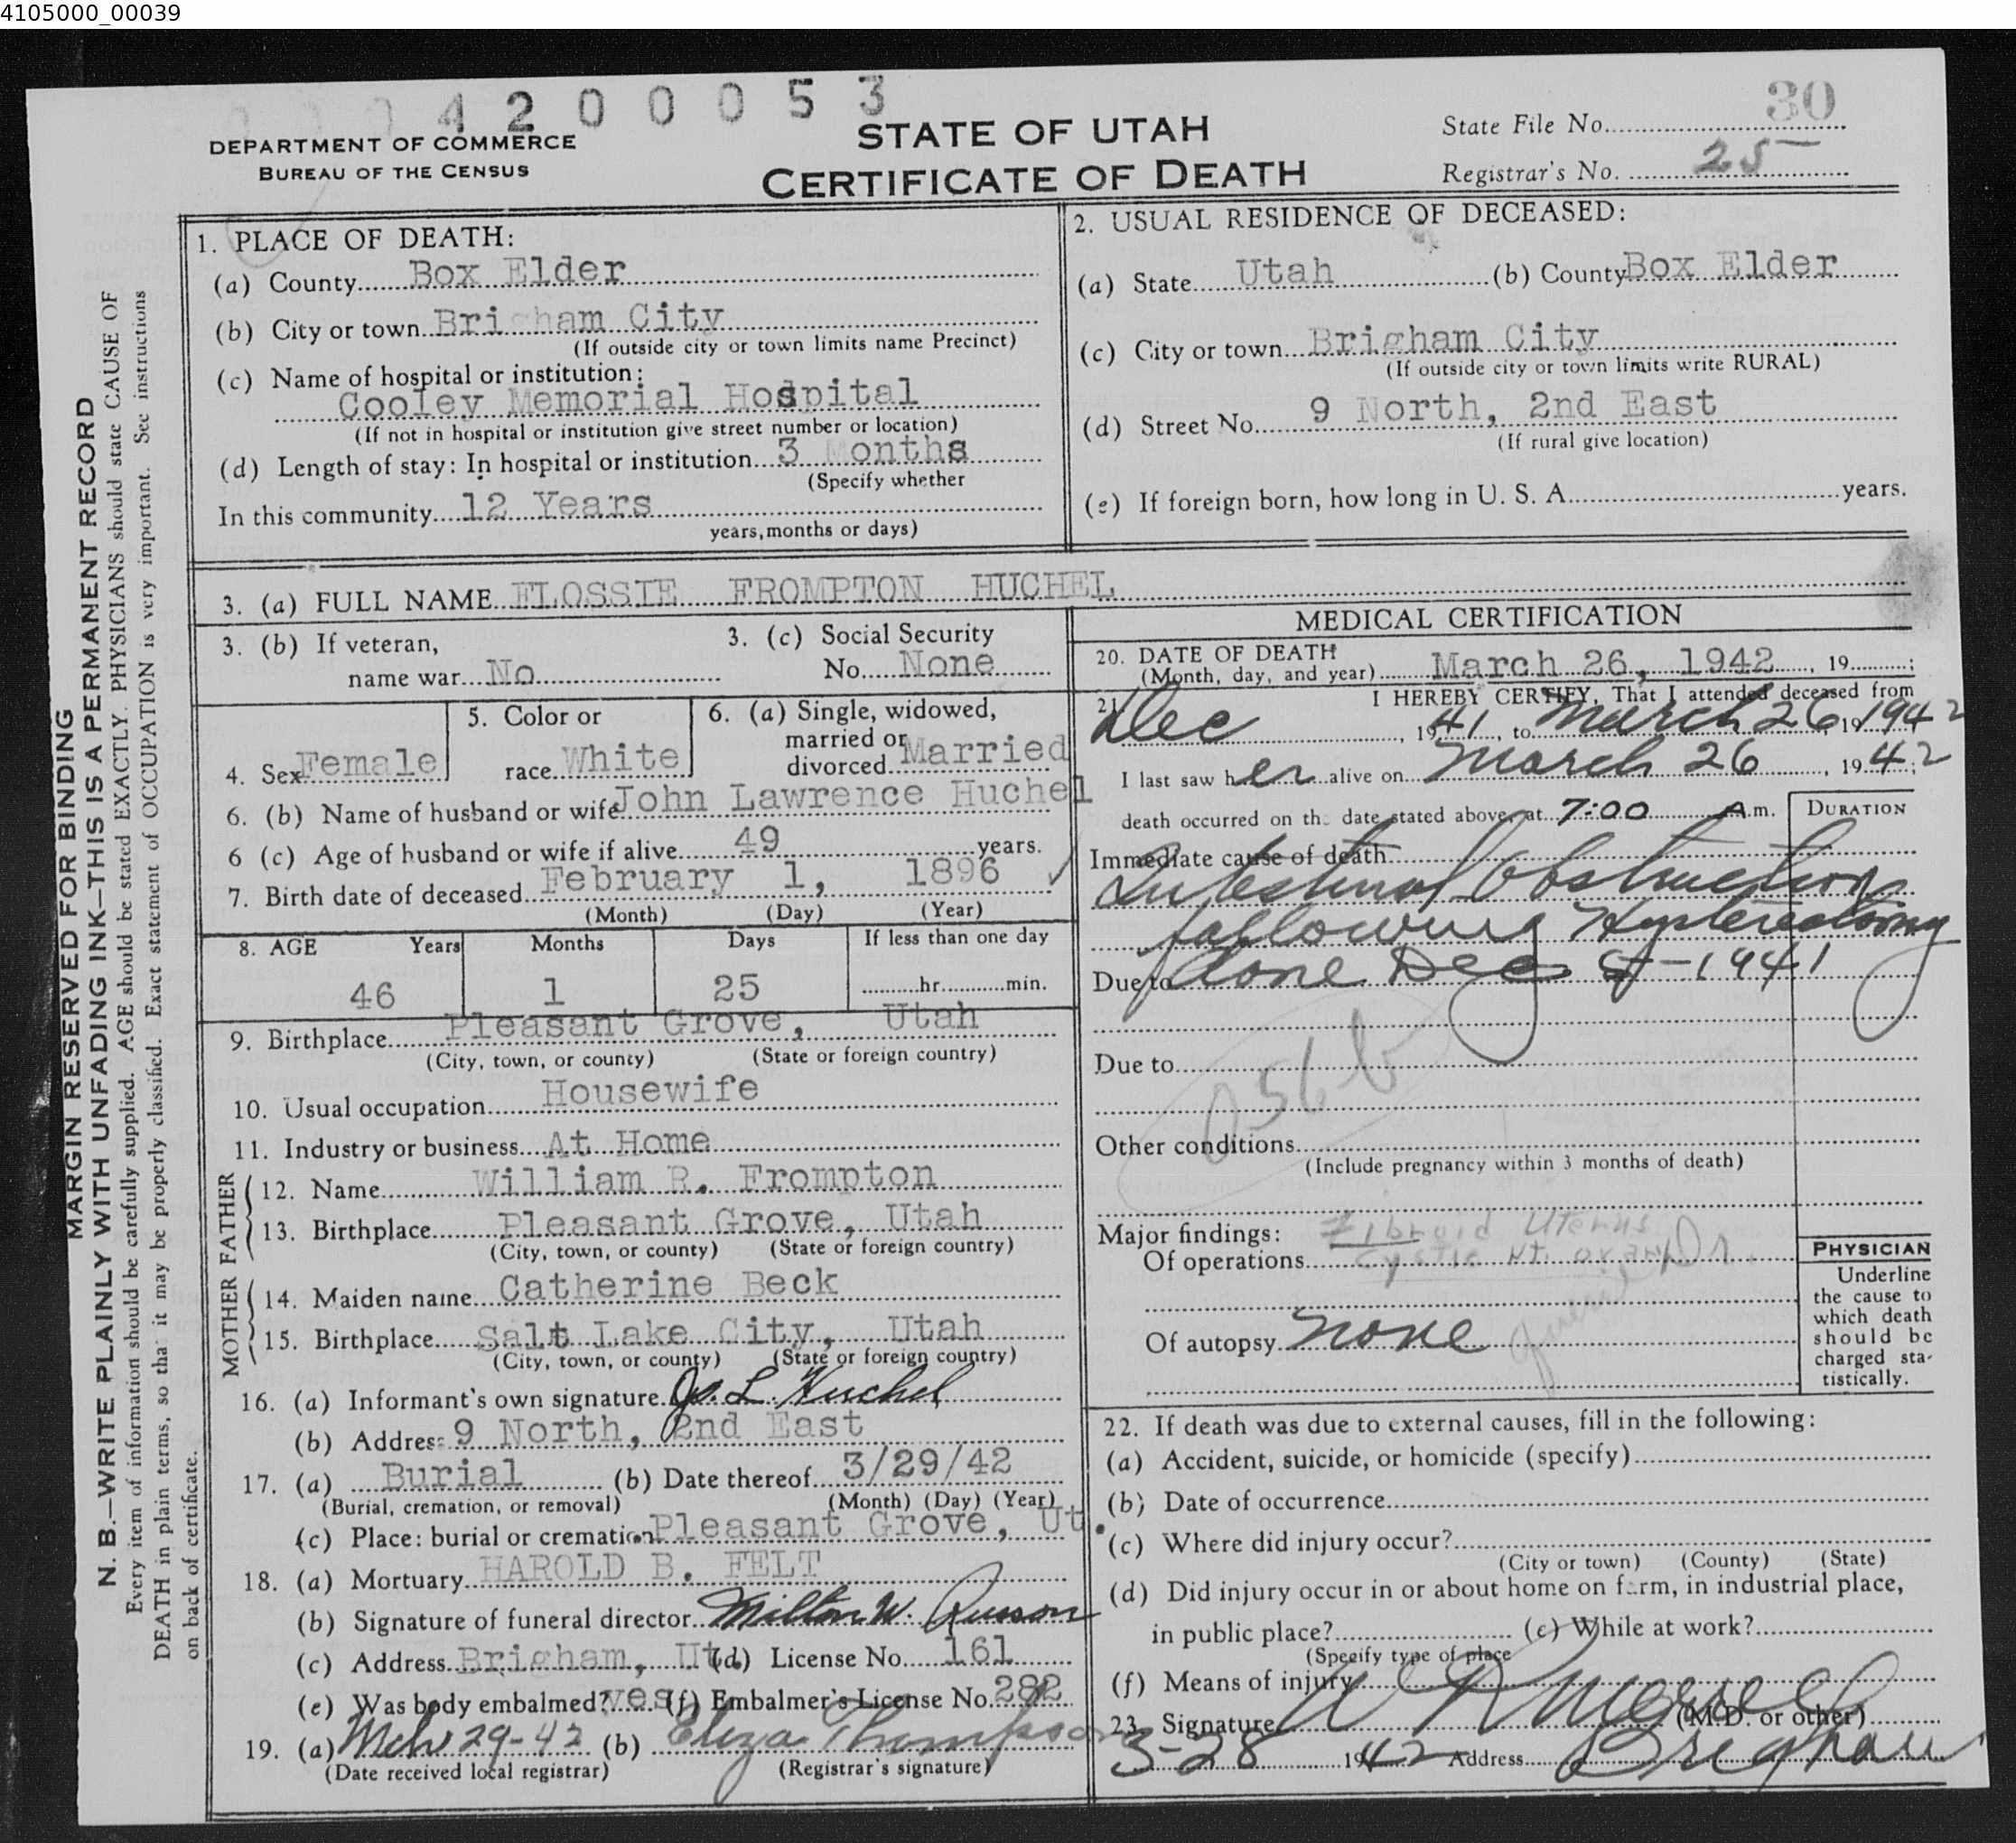 4105000_00039
4 2 0 0 0 5 3
30
DEPARTMENT OF COMMERCE
BUREAU OF THE CENSUS
STATE OF UTAH
CERTIFICATE OF DEATH
State File No.
Registrar's No. 25
MARGIN RESERVED FOR BINDING
N. B.—WRITE PLAINLY WITH UNFADING INK—THIS IS A PERMANENT RECORD
Every item of information should be carefully supplied. AGE should be stated EXACTLY. PHYSICIANS should state CAUSE OF
DEATH in plain terms, so that it may be properly classified. Exact statement of OCCUPATION is very important. See instructions
on back of certificate.
1. PLACE OF DEATH:
(a) County Box Elder
(b) City or town Brigham City
(If outside city or town limits name Precinct)
(c) Name of hospital or institution:
Cooley Memorial Hospital
(If not in hospital or institution give street number or location)
(d) Length of stay: In hospital or institution 3 Months
(Specify whether
In this community 12 Years
years, months or days)
2. USUAL RESIDENCE OF DECEASED:
(a) State Utah (b) County Box Elder
(c) City or town Brigham City
(If outside city or town limits write RURAL)
(d) Street No. 9 North, 2nd East
(If rural give location)
(e) If foreign born, how long in U. S. A. years.
3. (a) FULL NAME FLOSSIE FROMPTON HUCHEL
3. (b) If veteran,
name war No
3. (c) Social Security
No. None
4. Sex Female
5. Color or
race White
6. (a) Single, widowed,
married or
divorced Married
6. (b) Name of husband or wife John Lawrence Huchel
6 (c) Age of husband or wife if alive 49 years.
7. Birth date of deceased February 1, 1896
(Month) (Day) (Year)
8. AGE Years Months Days If less than one day
46 1 25 hr. min.
9. Birthplace Pleasant Grove, Utah
(City, town, or county) (State or foreign country)
10. Usual occupation Housewife
11. Industry or business At Home
FATHER
12. Name William R. Frompton
13. Birthplace Pleasant Grove, Utah
(City, town, or county) (State or foreign country)
MOTHER
14. Maiden name Catherine Beck
15. Birthplace Salt Lake City, Utah
(City, town, or county) (State or foreign country)
16. (a) Informant's own signature Jo. L. Huchel
(b) Address 9 North, 2nd East
17. (a) Burial (b) Date thereof 3/29/42
(Burial, cremation, or removal) (Month) (Day) (Year)
(c) Place: burial or cremation Pleasant Grove, Ut.
18. (a) Mortuary HAROLD B. FELT
(b) Signature of funeral director Milton W. Russon
(c) Address Brigham, Ut. (d) License No. 161
(e) Was body embalmed? yes (f) Embalmer's License No. 282
19. (a) Mch 29-42 (b) Eliza Thompson
(Date received local registrar) (Registrar's signature)
MEDICAL CERTIFICATION
20. DATE OF DEATH
(Month, day, and year) March 26, 1942, 19 ;
21. I HEREBY CERTIFY, That I attended deceased from
Dec, 1941, to March 26 19 1942
I last saw her alive on March 26, 1942;
death occurred on the date stated above, at 7:00 A.m.
DURATION
Immediate cause of death
Intestinal Obstruction
following Hysterectomy
Due to done Dec 1941
Due to
056 b
Other conditions
(Include pregnancy within 3 months of death)
Major findings: Fibroid Uterus
Of operations Cystic
Of autopsy None
PHYSICIAN
Underline
the cause to
which death
should be
charged sta-
tistically.
22. If death was due to external causes, fill in the following:
(a) Accident, suicide, or homicide (specify)
(b) Date of occurrence
(c) Where did injury occur?
(City or town) (County) (State)
(d) Did injury occur in or about home on farm, in industrial place,
in public place? (e) While at work?
(Specify type of place
(f) Means of injury
23. Signature (M.D. or other)
3-28 1942 Address Brigham